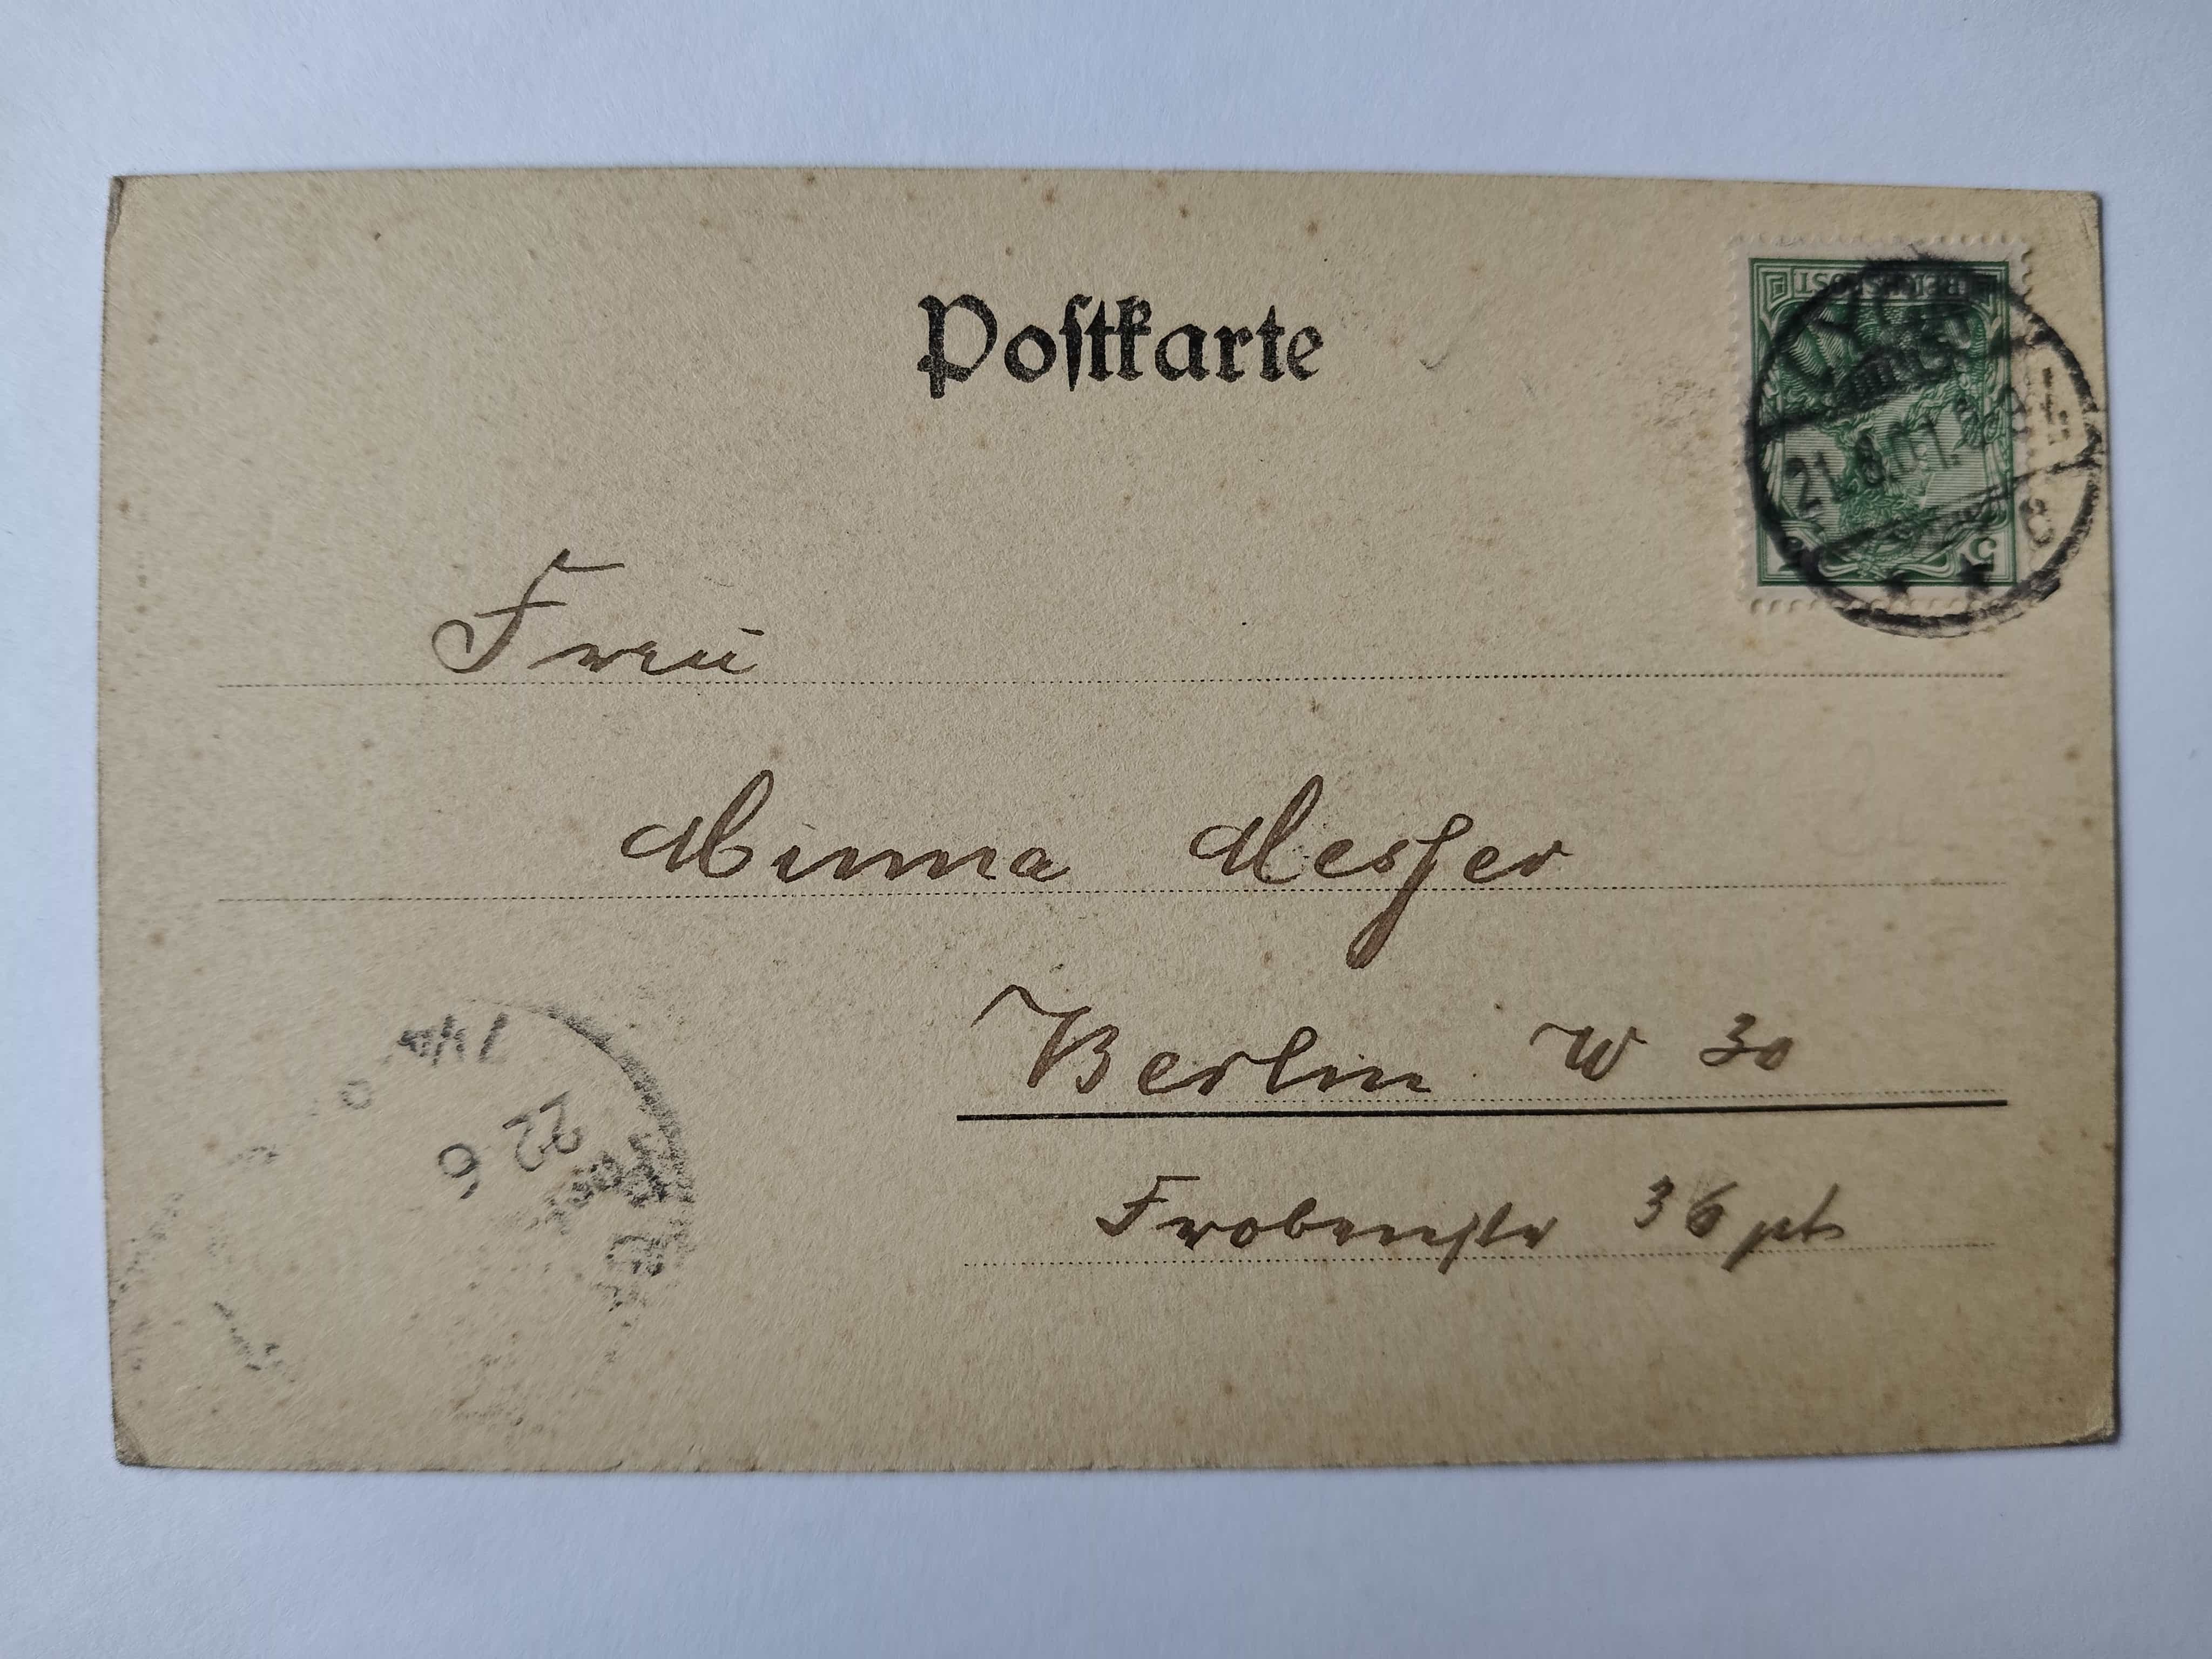 Postkarte
REICHSPOST
21.8.01.
5
Frau
Minna Messer
Berlin W 30
Frobenstr 36 pt
22 6